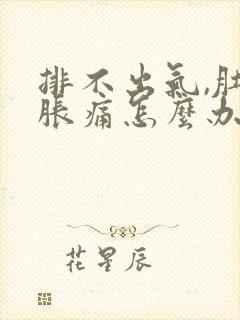 排不出氣,肚
脹痛怎麼办
花星辰